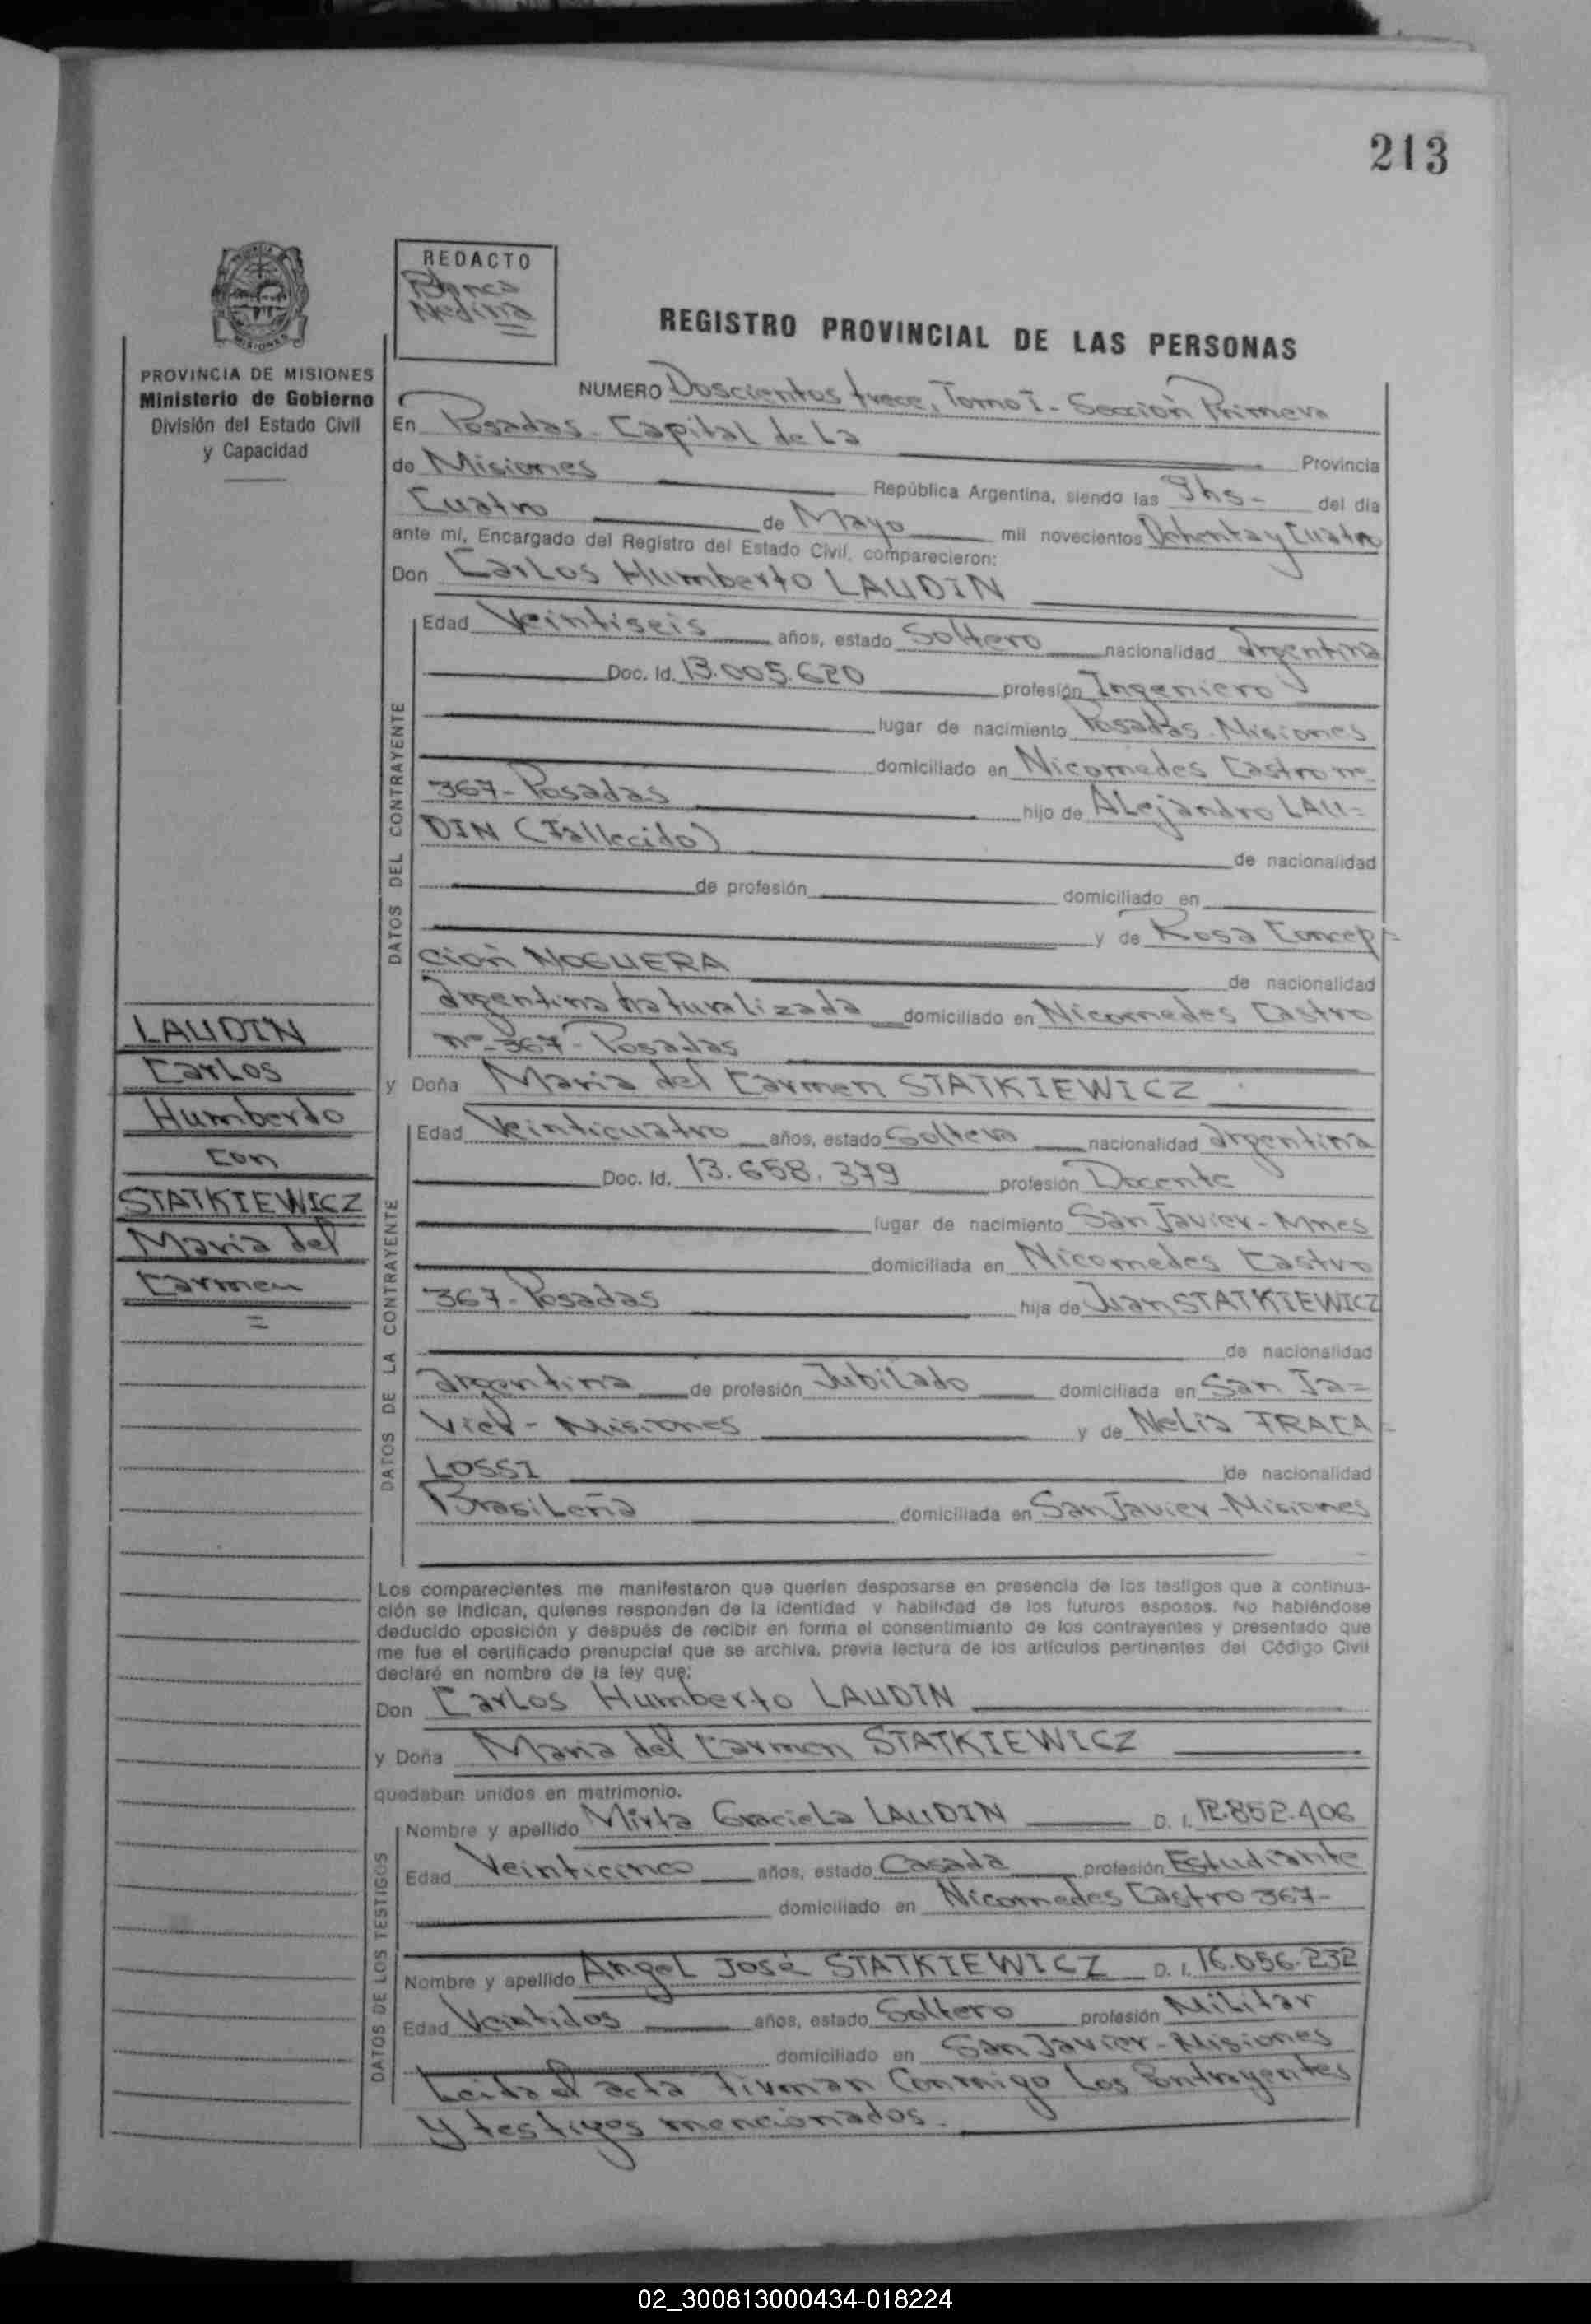 213
REDACTO
Blanca
Medina
REGISTRO PROVINCIAL DE LAS PERSONAS
PROVINCIA DE MISIONES
Ministerio de Gobierno
División del Estado Civil
y Capacidad
NUMERO Doscientos trece, Tomo I - Sección Primera
En Posadas - Capital de La Provincia
de Misiones República Argentina, siendo las 9hs - del día
Cuatro de Mayo mil novecientos Ochenta y Cuatro
ante mí, Encargado del Registro del Estado Civil, comparecieron:
Don Carlos Humberto LAUDIN
DATOS DEL CONTRAYENTE
Edad Veintiseis años, estado Soltero nacionalidad Argentina
Doc. Id. 13.005.620 profesión Ingeniero
lugar de nacimiento Posadas - Misiones
domiciliado en Nicomedes Castro nº
367 - Posadas hijo de Alejandro LAU=
DIN (Fallecido) de nacionalidad
de profesión domiciliado en
y de Rosa Concep=
ción NOGUERA de nacionalidad
Argentina naturalizada domiciliado en Nicomedes Castro
nº 367 - Posadas
y Doña Maria del Carmen STATKIEWICZ
LAUDIN
Carlos
Humberto
con
STATKIEWICZ
Maria del
Carmen
=
DATOS DE LA CONTRAYENTE
Edad Veinticuatro años, estado Soltera nacionalidad Argentina
Doc. Id. 13.658.379 profesión Docente
lugar de nacimiento San Javier - Mnes
domiciliada en Nicomedes Castro
367 - Posadas hija de Juan STATKIEWICZ
de nacionalidad
Argentina de profesión Jubilado domiciliada en San Ja=
vier - Misiones y de Nelia FRACA=
LOSSI de nacionalidad
Brasileña domiciliada en San Javier - Misiones
Los comparecientes me manifestaron que querían desposarse en presencia de los testigos que a continua-
ción se indican, quienes responden de la identidad y habilidad de los futuros esposos. No habiéndose
deducido oposición y después de recibir en forma el consentimiento de los contrayentes y presentado que
me fue el certificado prenupcial que se archiva, previa lectura de los artículos pertinentes del Código Civil
declaré en nombre de la ley que:
Don Carlos Humberto LAUDIN
y Doña Maria del Carmen STATKIEWICZ
quedaban unidos en matrimonio.
DATOS DE LOS TESTIGOS
Nombre y apellido Mirta Graciela LAUDIN D. I. 12.852.406
Edad Veinticinco años, estado Casada profesión Estudiante
domiciliado en Nicomedes Castro 367 -
Nombre y apellido Angel José STATKIEWICZ D. I. 16.056.232
Edad Veintidos años, estado Soltero profesión Militar
domiciliado en San Javier - Misiones
Leida el acta Firman Conmigo Los Contrayentes
y testigos mencionados.
02_300813000434-018224